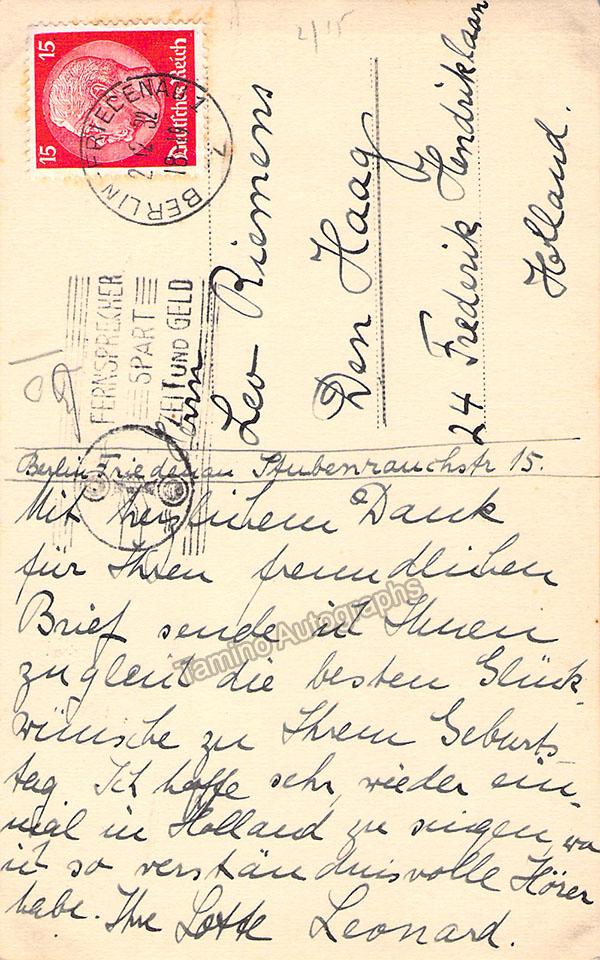 2/15
15 15
Deutsches Reich
BERLIN-FRIEDENAU 1
2.12.32
FERNSPRECHER
SPART
ZEIT UND GELD
Herrn
Leo Riemens
Den Haag
24 Frederik Hendriklaan
Holland.
Berlin-Friedenau Stubenrauchstr 15.
Mit herzlichem Dank
für Ihren freundlichen
Brief sende ich Ihnen
zugleich die besten Glück-
wünsche zu Ihrem Geburts
tag Ich hoffe sehr, wieder ein-
mal in Holland zu singen, wo
ich so verständnisvolle Hörer
habe. Ihre Lotte Leonard.
Tamino Autographs